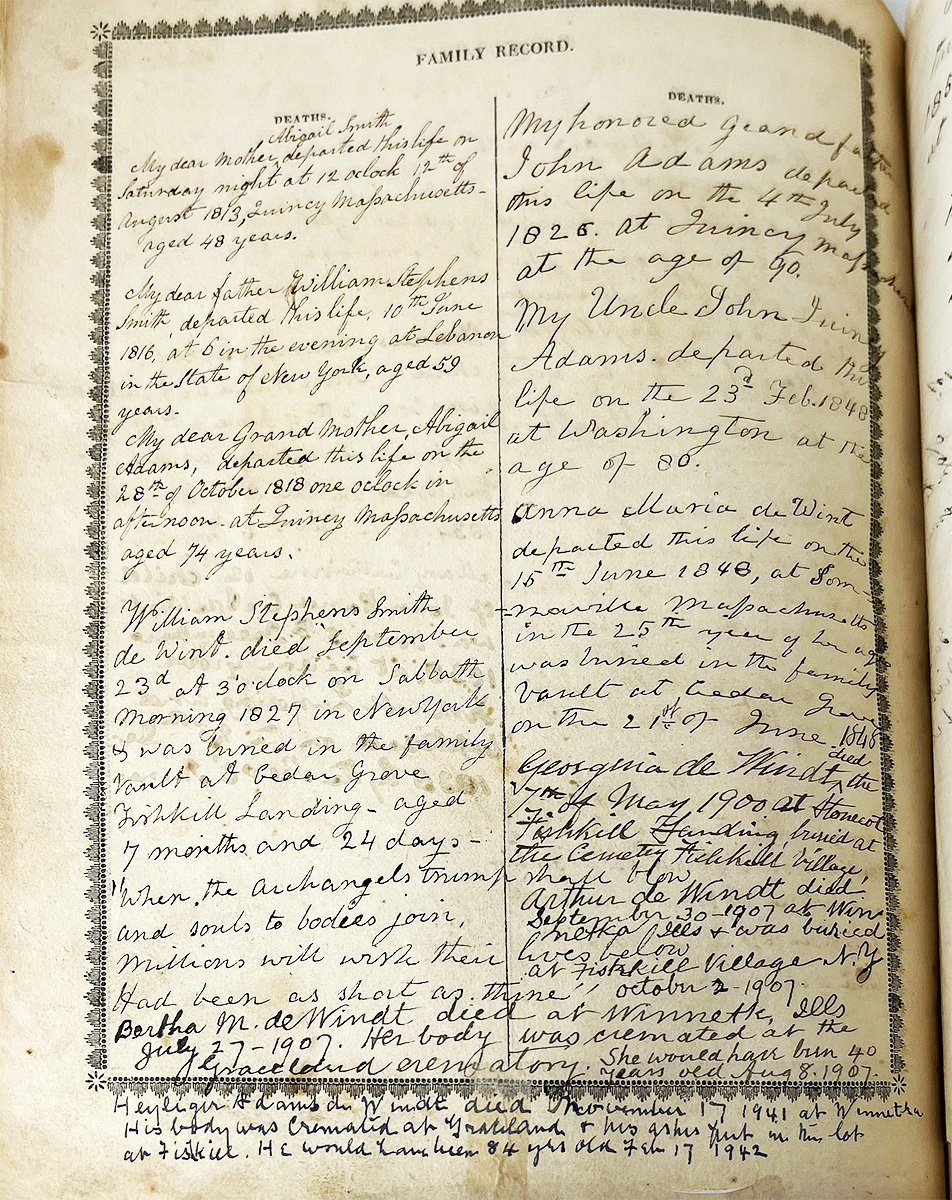 FAMILY RECORD.
DEATHS.
Abigail Smith
My dear Mother, departed this life on
Saturday night at 12 oclock 12th of
August 1813, Quincy Massachusetts-
aged 48 years.
My dear father William Stephens
Smith, departed this life, 10th June
1816, at 6 in the evening at Lebanon
in the State of New York, aged 59
years.
My dear Grand Mother, Abigail
Adams, departed this life on the
28th of October 1818 one oclock in
afternoon- at Quincy Massachusetts
aged 74 years.
William Stephens Smith
de Wint. died September
23d at 3 o'clock on Sabbath
Morning 1827 in New York
& was buried in the family
Vault at Cedar Grove
Fishkill Landing- aged
7 months and 24 days-
"When the archangels trump shall blow
and souls to bodies join,
Millions will wish their lives below
Had been as short as thine"
DEATHS.
My honored Grand father
John Adams departed
this life on the 4th July
1826. at Quincy Massachusetts
at the age of 90.
My Uncle John Quincy
Adams. departed this
life on the 23d Feb. 1848
at Washington at the
age of 80.
Anna Maria de Wint
departed this life on the
15th June 1848, at Som-
-merville Massachusetts
in the 25th year of her age
was buried in the family
Vault at Cedar Grove
on the 21st of June 1848
died
Georgina de Windt, the
7th of May 1900 at Stonecot
Fishkill Landing, buried at
the Cemetery Fishkill Village,
Arthur de Windt died
September 30-1907 at Win
netka Ills & was buried
at Fishkill Village N.Y
october 2-1907.
Bertha M. de Windt died at Winnetk, Ills
July 27-1907. Her body was cremated at the
Graceland crematory. She would have been 40
years old Aug 8. 1907.
Heyliger Adams de Windt died November 17 1941 at Winnetka
His body was Cremated at Graceland & his ashes put in the lot
at Fiskill. He would have been 84 yrs old Feb 17 1942